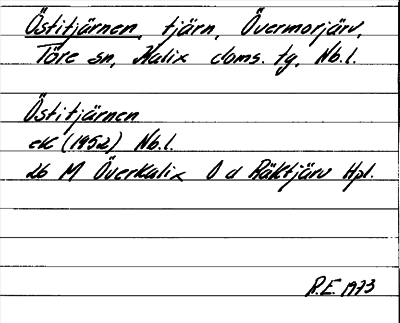 Östitjärnen, tjärn, Övermorjärv,
Töre sn, Kalix doms. tg, Nb.l.
Östitjärnen
ek (1952) Nb.l.
26 M Överkalix O d Räktjärv Hpl.
R.E. 1973